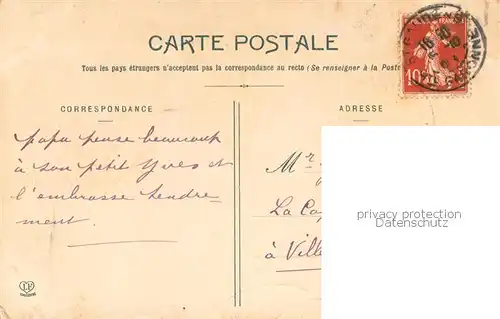 CARTE POSTALE
Tous les pays étrangers n'acceptent pas la correspondance au recto (Se renseigner à la Poste
CORRESPONDANCE
ADRESSE
papa pense beaucoup
à son petit Yves et
l'embrasse tendre-
ment.
Mr
La Ca
à Ville
10
privacy protection
Datenschutz